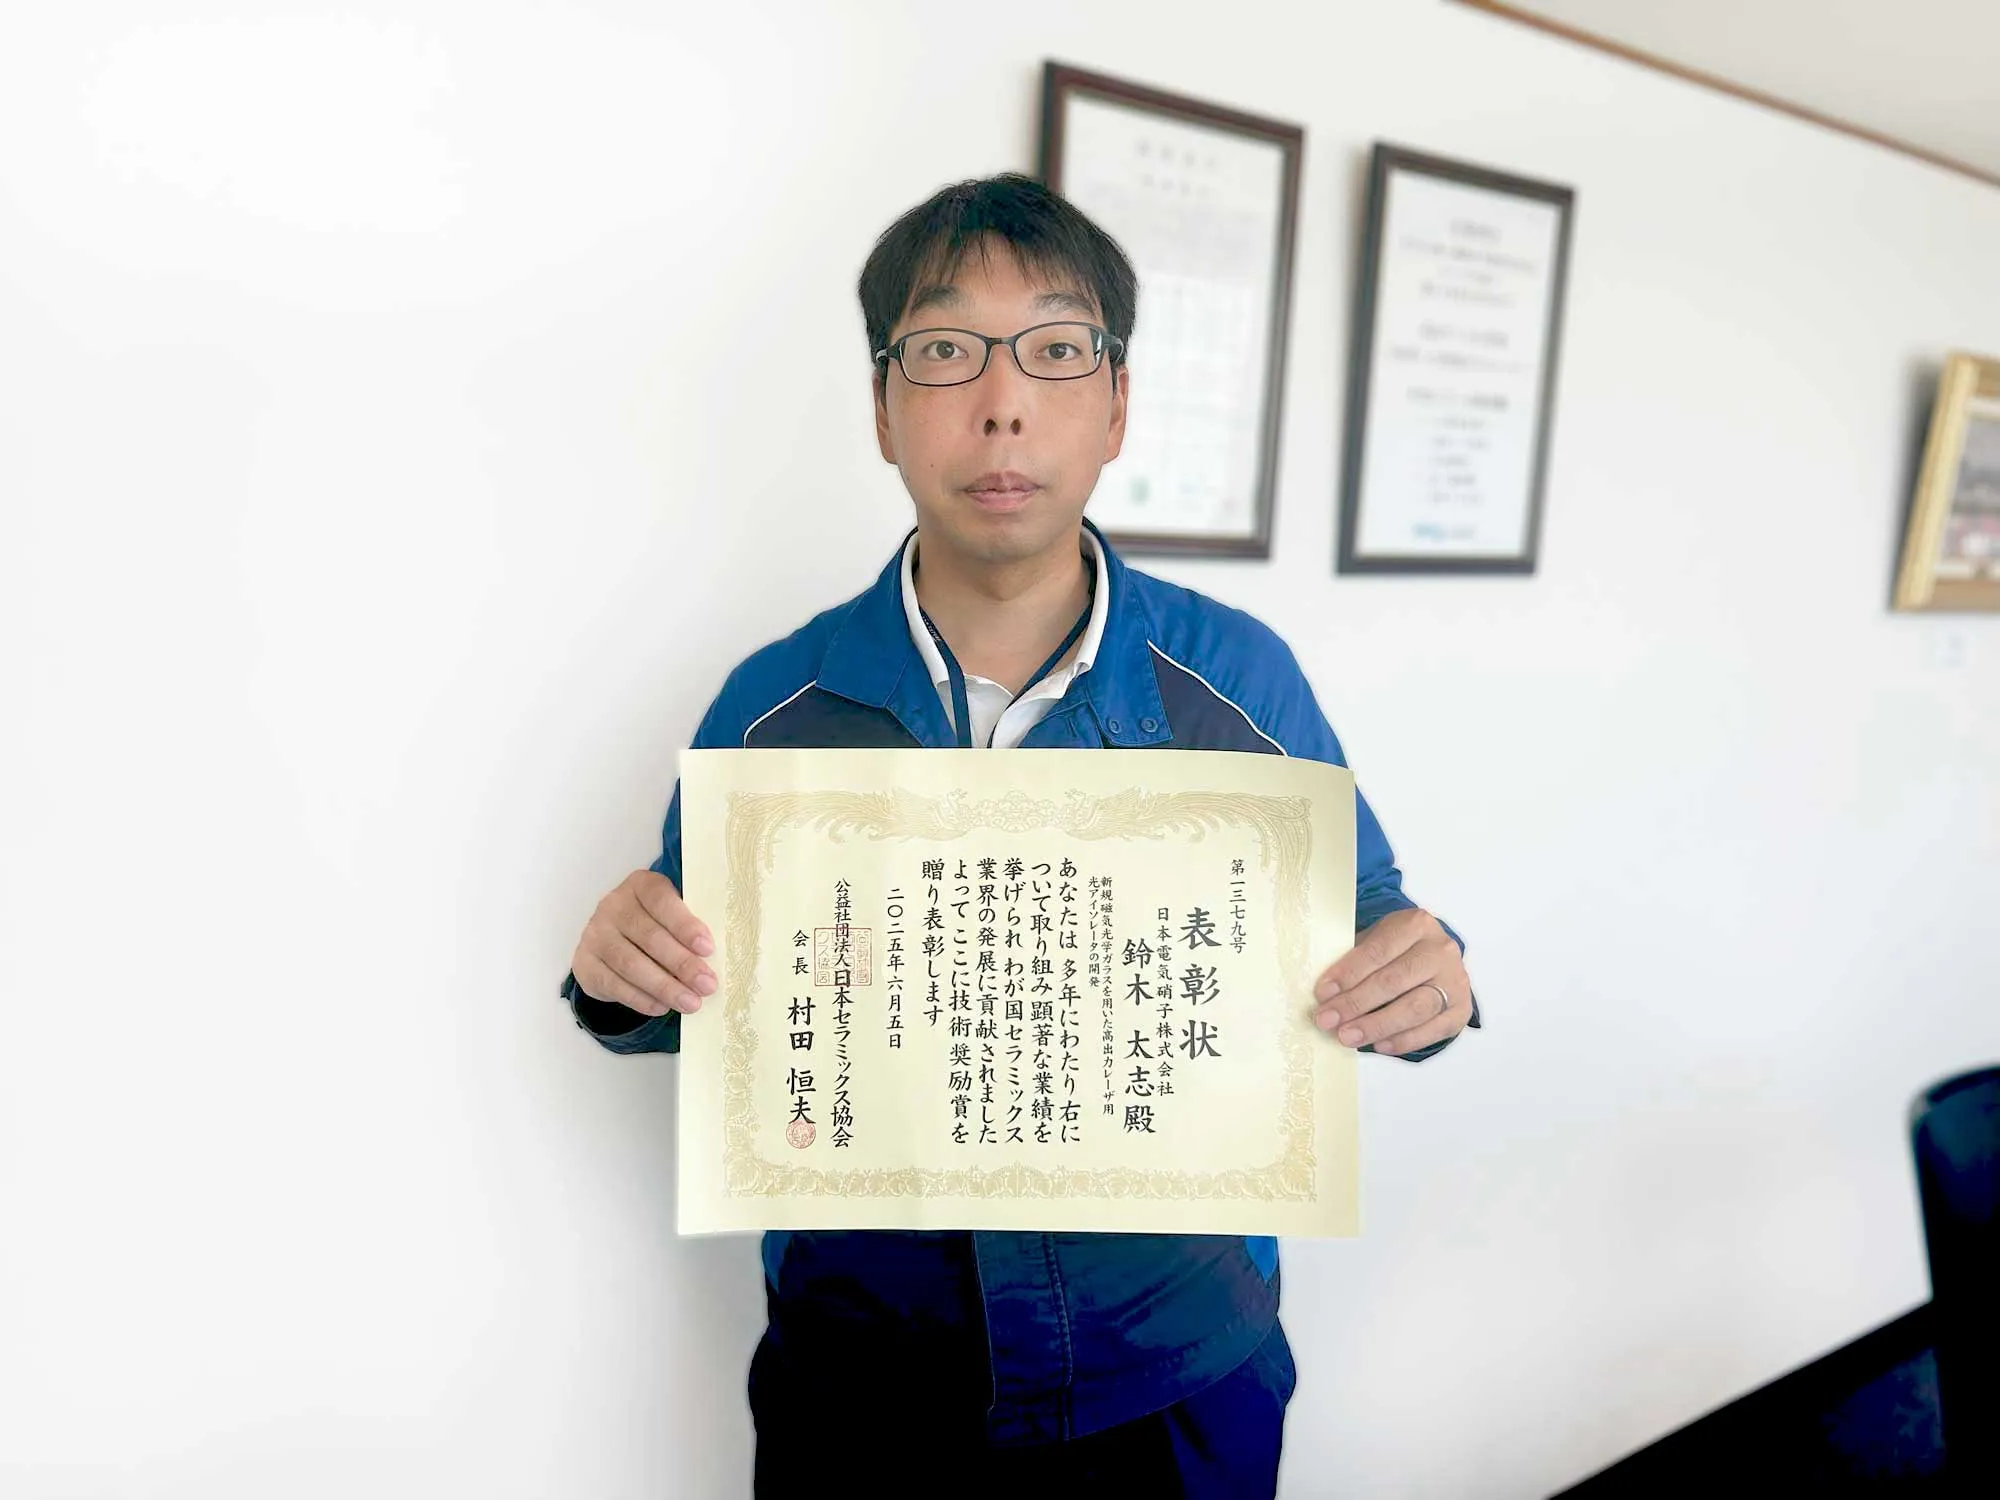 第一三七九号
表彰状
日本電気硝子株式会社
鈴木 太志殿
新規磁気光学ガラスを用いた高出力レーザ用
光アイソレータの開発
あなたは 多年にわたり右に
ついて取り組み顕著な業績を
挙げられ わが国セラミックス
業界の発展に貢献されました
よって ここに技術奨励賞を
贈り表彰します
二〇二五年六月五日
公益社団法人日本セラミックス協会
会長 村田 恒夫